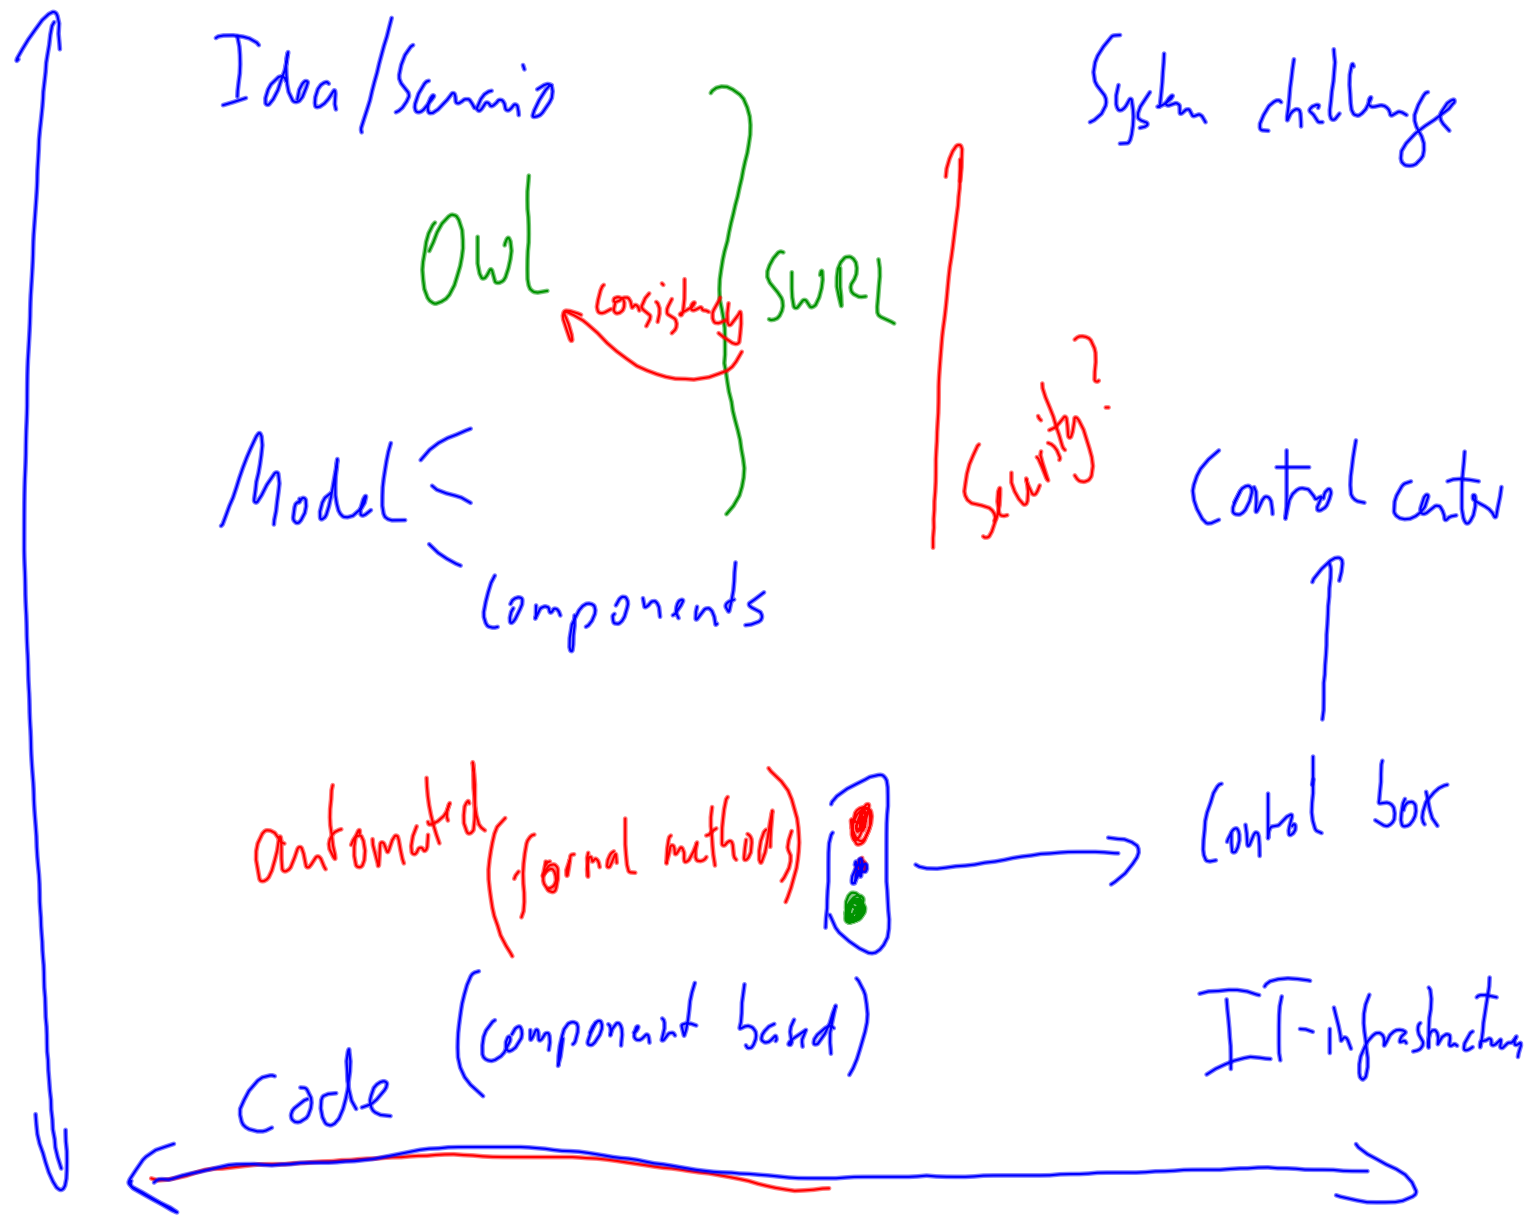 Idea/Scenario
System challenge
OWL
consistency
SWRL
Security?
Model
Control center
Components
automated (formal methods)
Control box
(component based)
IT-infrastructure
Code